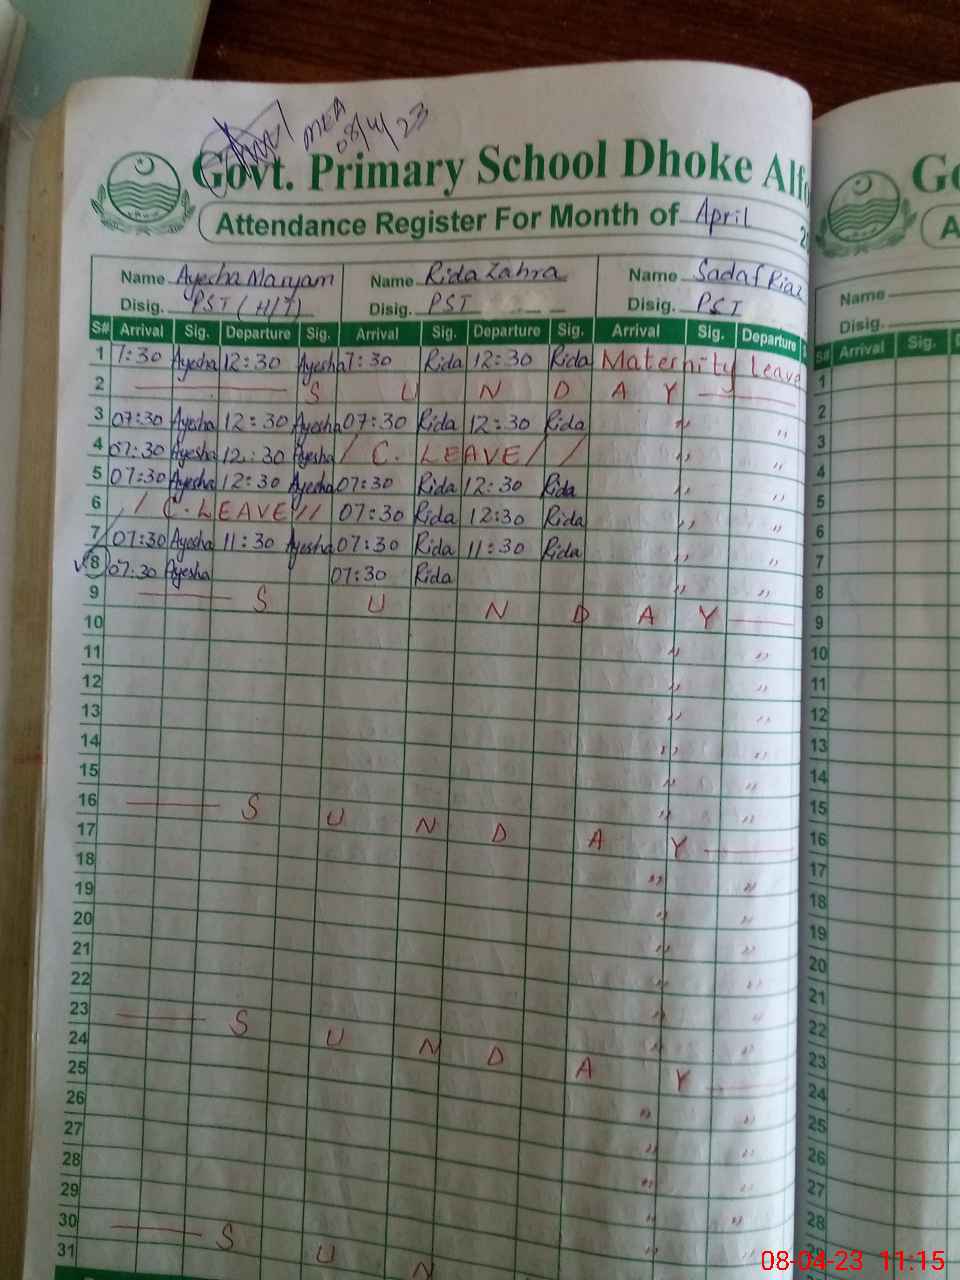 MEA
08/4/23
Govt. Primary School Dhoke
Attendance Register For Month of April
Name Ayesha Maryam Name Rida Zahra Name Sadaf Riaz
Disig. PST (H/T) Disig. PST Disig. PST
S# Arrival Sig. Departure Sig. Arrival Sig. Departure Sig. Arrival Sig. Departure
1 7:30 Ayesha 12:30 Ayesha 7:30 Rida 12:30 Rida Maternity Leave
2 S U N D A Y
3 07:30 Ayesha 12:30 Ayesha 07:30 Rida 12:30 Rida " "
4 07:30 Ayesha 12:30 Ayesha / C. LEAVE // " "
5 07:30 Ayesha 12:30 Ayesha 07:30 Rida 12:30 Rida " "
6 / C. LEAVE // 07:30 Rida 12:30 Rida " "
7 07:30 Ayesha 11:30 Ayesha 07:30 Rida 11:30 Rida " "
8 07:30 Ayesha 07:30 Rida " "
9 S U N D A Y
10 " "
11 " "
12 " "
13 " "
14 " "
15 " "
16 S U N D A Y
17 " "
18 " "
19 " "
20 " "
21 " "
22 " "
23 S U N D A Y
24 " "
25 " "
26 " "
27 " "
28 " "
29 " "
30 S U N
31
Name
Disig.
S# Arrival Sig.
1
2
3
4
5
6
7
8
9
10
11
12
13
14
15
16
17
18
19
20
21
22
23
24
25
26
27
28
08-04-23 11:15